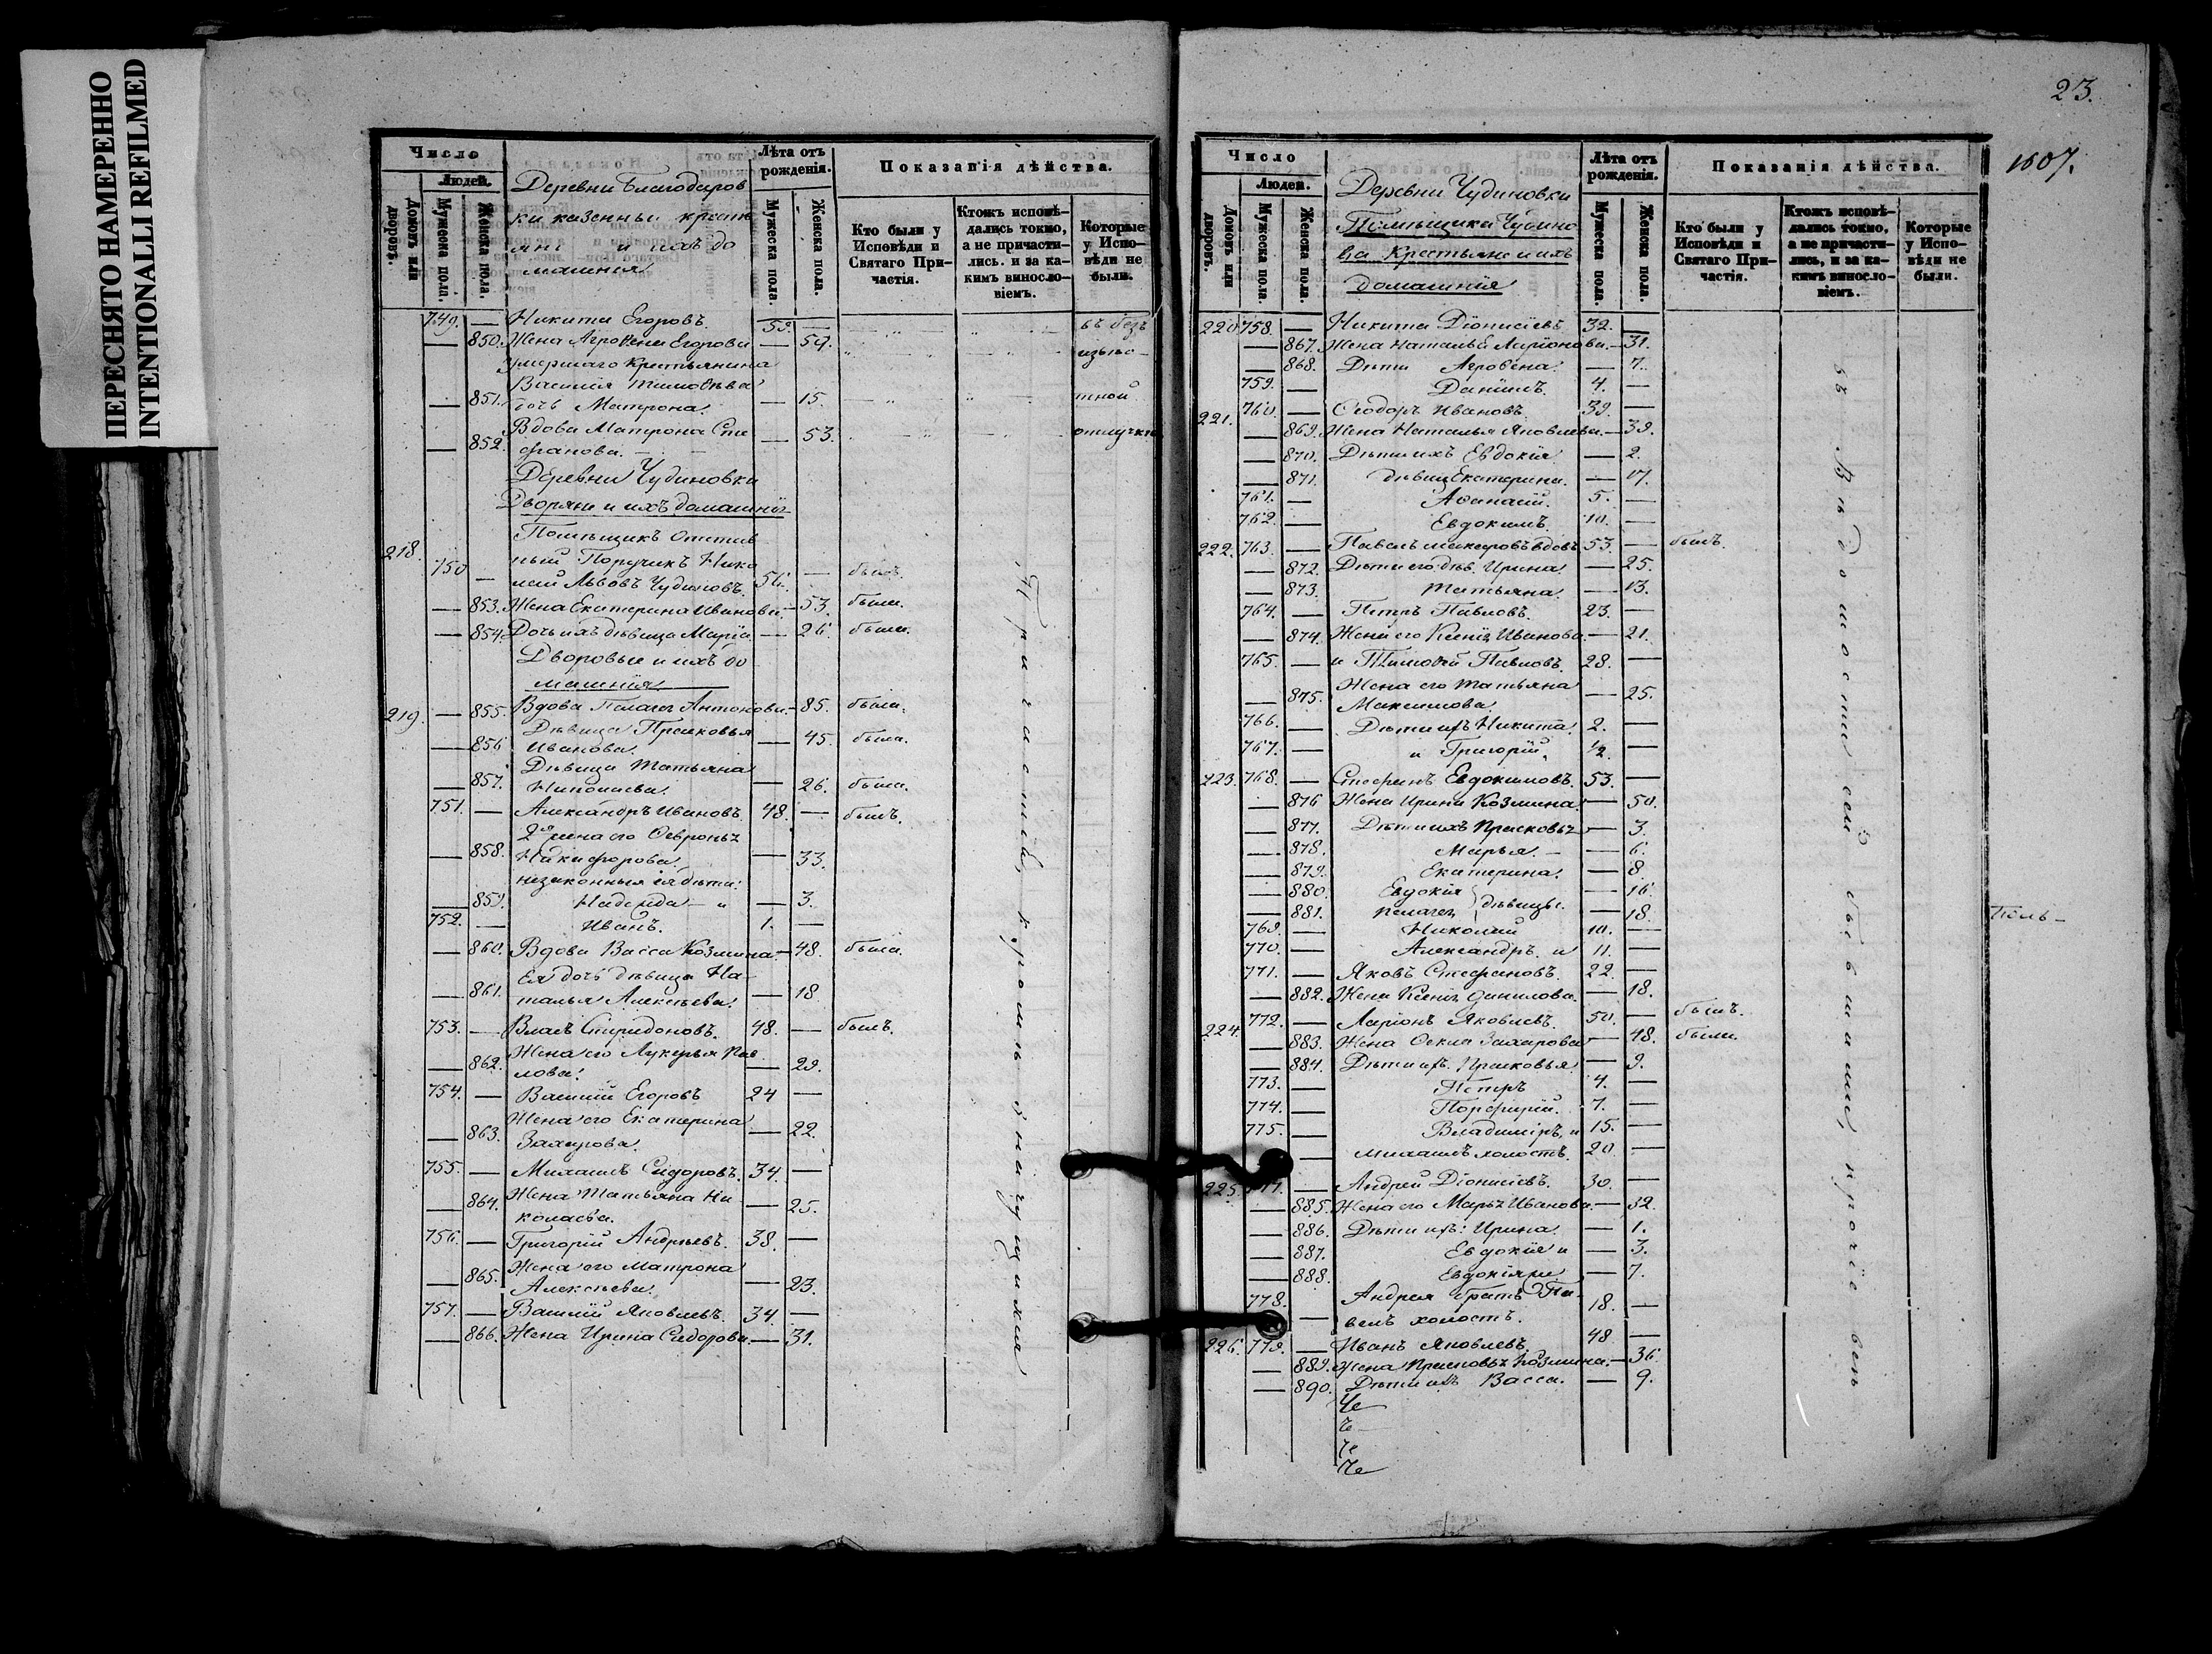 ПЕРЕСНЯТО НАМЕРЕННО
INTENTIONALLI REFILMED
Число
Людей.
Домовъ или дворовъ.
Мужеска пола.
Женска пола.
Деревни Благодаров
ки казенны крестья
яне и ихъ до
машнія
Лѣта отъ рожденія.
Мужеска пола.
Женска пола.
Показанія дѣйства.
Кто были у Исповѣди и Святаго Причастія.
Ктожъ исповѣдались токмо, а не причастились. и за какимъ винословіемъ.
Которые у Исповѣди не были.
749. — Никита Егоровъ. 59. — въ безъ
— 850. Жена Агрофена Егорова — 59. извѣс-
Умершаго крестьянина
Василія Тимоѳѣева
— 851. дочь Матрона. — 15. тной
Вдова Матрона Сте
— 852. фанова. — 53. отлучкѣ
Деревни Чудиновки
Дворяне и ихъ домашнія
Помѣщикъ Отстав
218. 750 — ный Поручикъ Нико
лай Львовъ Чудиновъ. 56. — былъ.
— 853. Жена Екатерина Иванова. — 53. была.
— 854. Дочь ихъ дѣвица Марія — 26. была.
Дворовые и ихъ до
машнія
219. — 855. Вдова Пелагея Антонова. — 85. была.
Дѣвица Прасковья
— 856 Иванова. — 45. была.
Дѣвица Татьяна
— 857. Николаева. — 26. была.
751. — Александръ Ивановъ. 48. — былъ.
2я жена его Ѳевронья
— 858. Никифорова. — 33.
незаконныя ея дѣти:
— 859. Надежда — и — 3.
752. — Иванъ. 1. —
— 860. Вдова Васса Козмина. — 48. была.
Ея дочь дѣвица На-
— 861. талья Алексѣева. — 18
753. — Власъ Спиридоновъ. 48. — былъ.
Жена его Лукерья Пав
— 862. лова. — 29.
754. — Василій Егоровъ 24 —
Жена его Екатерина
— 863. Захарова. — 22.
755. — Михаилъ Сидоровъ. 34. —
Жена Татьяна Ни-
— 864. колаева. — 25.
756. — Григорій Андреевъ. 38. —
Жена его Матрона
— 865. Алексѣева. — 23.
757. — Василій Яковлевъ. 34. —
— 866. Жена Ирина Сидорова. — 31.
23.
1607.
Число
Людей.
Домовъ или дворовъ.
Мужеска пола.
Женска пола.
Деревни Чудиновки
Помѣщика Чудино
ва Крестьяне и ихъ
домашнія
Лѣта отъ рожденія.
Мужеска пола.
Женска пола.
Показанія дѣйства.
Кто были у Исповѣди и Святаго Причастія.
Ктожъ исповѣдались токмо, а не причастились, и за какимъ винословіемъ.
Которые у Исповѣди не были.
220 758. — Никита Діонисіевъ 32. —
— 867. Жена Наталья Ларіонова. — 31.
— 868. Дѣти Агрофена. — 7.
759. — Даніилъ. 4. —
221. 760. — Ѳеодоръ Ивановъ. 39. —
— 869. Жена Наталья Яковлева. — 39.
— 870. Дѣти ихъ Евдокія — 2.
— 871. дѣвиц Екатерина. — 17.
761. — Аѳанасій. 5. —
762. — Евдокимъ. 10. —
222. 763. — Павелъ Макаровъ вдовъ 53. — былъ.
— 872. Дѣти его: дѣв. Ирина. — 25.
— 873. Татьяна. — 13.
764. — Петръ Павловъ. 23. —
— 874. Жена его Ксенія Иванова. — 21.
765. — и Тимоѳей Павловъ. 28. —
Жена его Татьяна
— 875. Максимова. — 25.
766. — Дѣти ихъ Никита 2. —
767. — и Григорій. ½ —
223. 768. — Стефанъ Евдокимовъ. 53. —
— 876 Жена Ирина Козмина. — 50.
— 877. Дѣти ихъ Прасковья — 3.
— 878. Марья. — — 6.
— 879. Екатерина. — 8
— 880. Евдокія — 16
— 881. Пелагея дѣвицы. — 18.
769. — Николай 10. —
770. — Александръ. и 11. —
771. — Яковъ Стефановъ. 22. —
— 882. Жена Ксенія Данилова. — 18.
224. 772. — Ларіонъ Яковлевъ. 50. — былъ.
— 883. Жена Ѳекла Захарова — 48. была.
— 884. Дѣти ихъ. Прасковья. — 9.
773. — Петръ 4. —
774. — Порфирій. 7. —
775. — Владиміръ, и 15. —
— Михаилъ холостъ. 20. —
225. 777. — Андрей Діонисіевъ. 30. —
— 885. Жена его Марья Иванова. — 32.
— 886. Дѣти ихъ: Ирина. — 1.
— 887. Евдокія и — 3.
— 888. — 7.
778. — Андрея братъ Па-
велъ холостъ. 18. —
226. 779. — Иванъ Яковлевъ. 48 —
— 889. Жена Прасковья Козмина. — 36
— 890. Дѣти ихъ Васса. — 9.
Че
Че
Че
Че